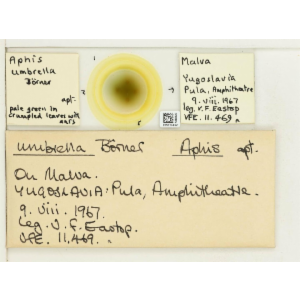 Aphis
umbrella
Börner
apt.
pale green in
crumpled leaves with
ants
Malva
Yugoslavia
Pula, Amphitheatre
9. viii. 1967
leg. V. F. Eastop
VFE. 11.469
umbrella Börner Aphis apt.
On Malva.
YUGOSLAVIA: Pula, Amphitheatre.
9. viii. 1967.
Leg. V. F. Eastop.
VFE. 11.469.